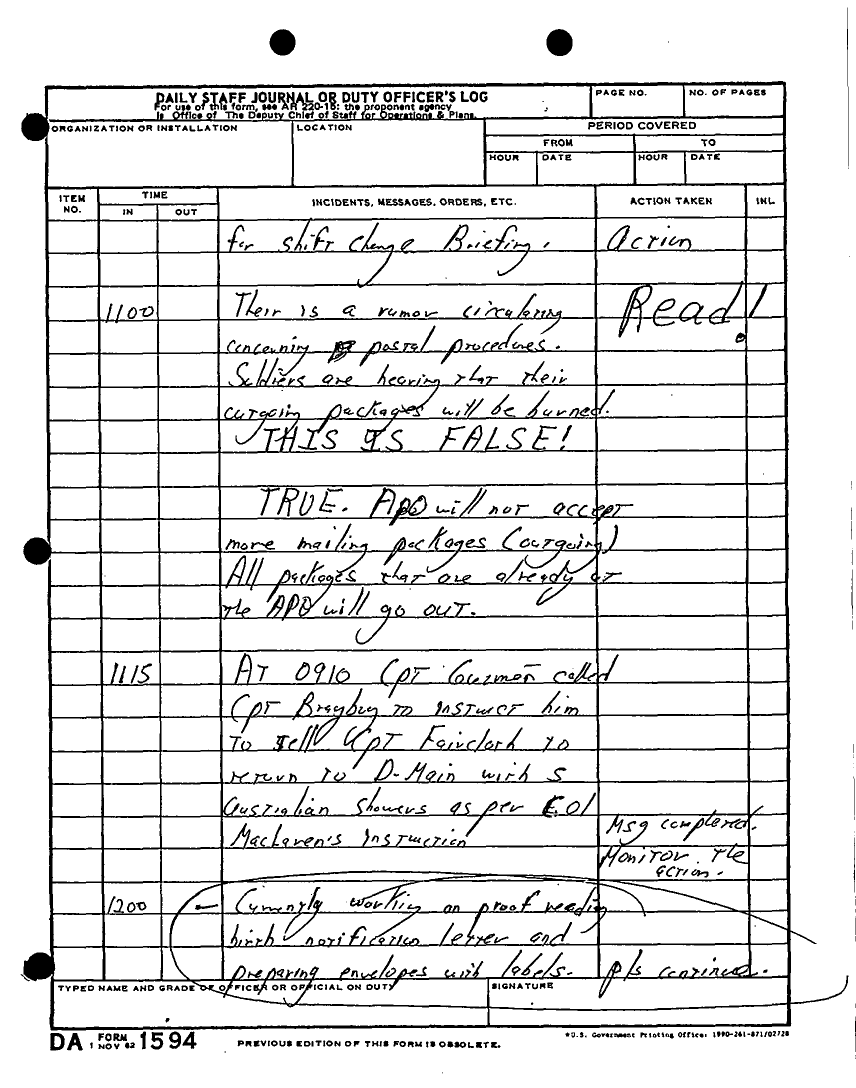 DAILY STAFF JOURNAL OR DUTY OFFICER'S LOG
For use of this form, see AR 220-15: the proponent agency
is Office of The Deputy Chief of Staff for Operations & Plans.
PAGE NO.
NO. OF PAGES
ORGANIZATION OR INSTALLATION
LOCATION
PERIOD COVERED
FROM
TO
HOUR
DATE
HOUR
DATE
ITEM NO.
TIME
IN
OUT
INCIDENTS, MESSAGES, ORDERS, ETC.
ACTION TAKEN
INL
for shift change Briefing. Action
1100 Their is a rumor circulating Read!
concerning postal procedures.
Soldiers are hearing that their
outgoing packages will be burned.
THIS IS FALSE!
TRUE. APO will not accept
more mailing packages (outgoing)
All packages that are already at
the APO will go out.
1115 AT 0910 Cpt Guzman called
Cpt to instruct him
to tell Cpt to
return to D-Main with 5
Australian showers as per
MacLaren's Instruction Msg completed.
Monitor the
action.
1200 - Currently working on proof reading
birth notification letter and
preparing envelopes with labels. pls continue.
TYPED NAME AND GRADE OF OFFICER OR OFFICIAL ON DUTY
SIGNATURE
DA FORM 1 NOV 62 1594
PREVIOUS EDITION OF THIS FORM IS OBSOLETE.
*U.S. Government Printing Office: 1990-261-871/02728